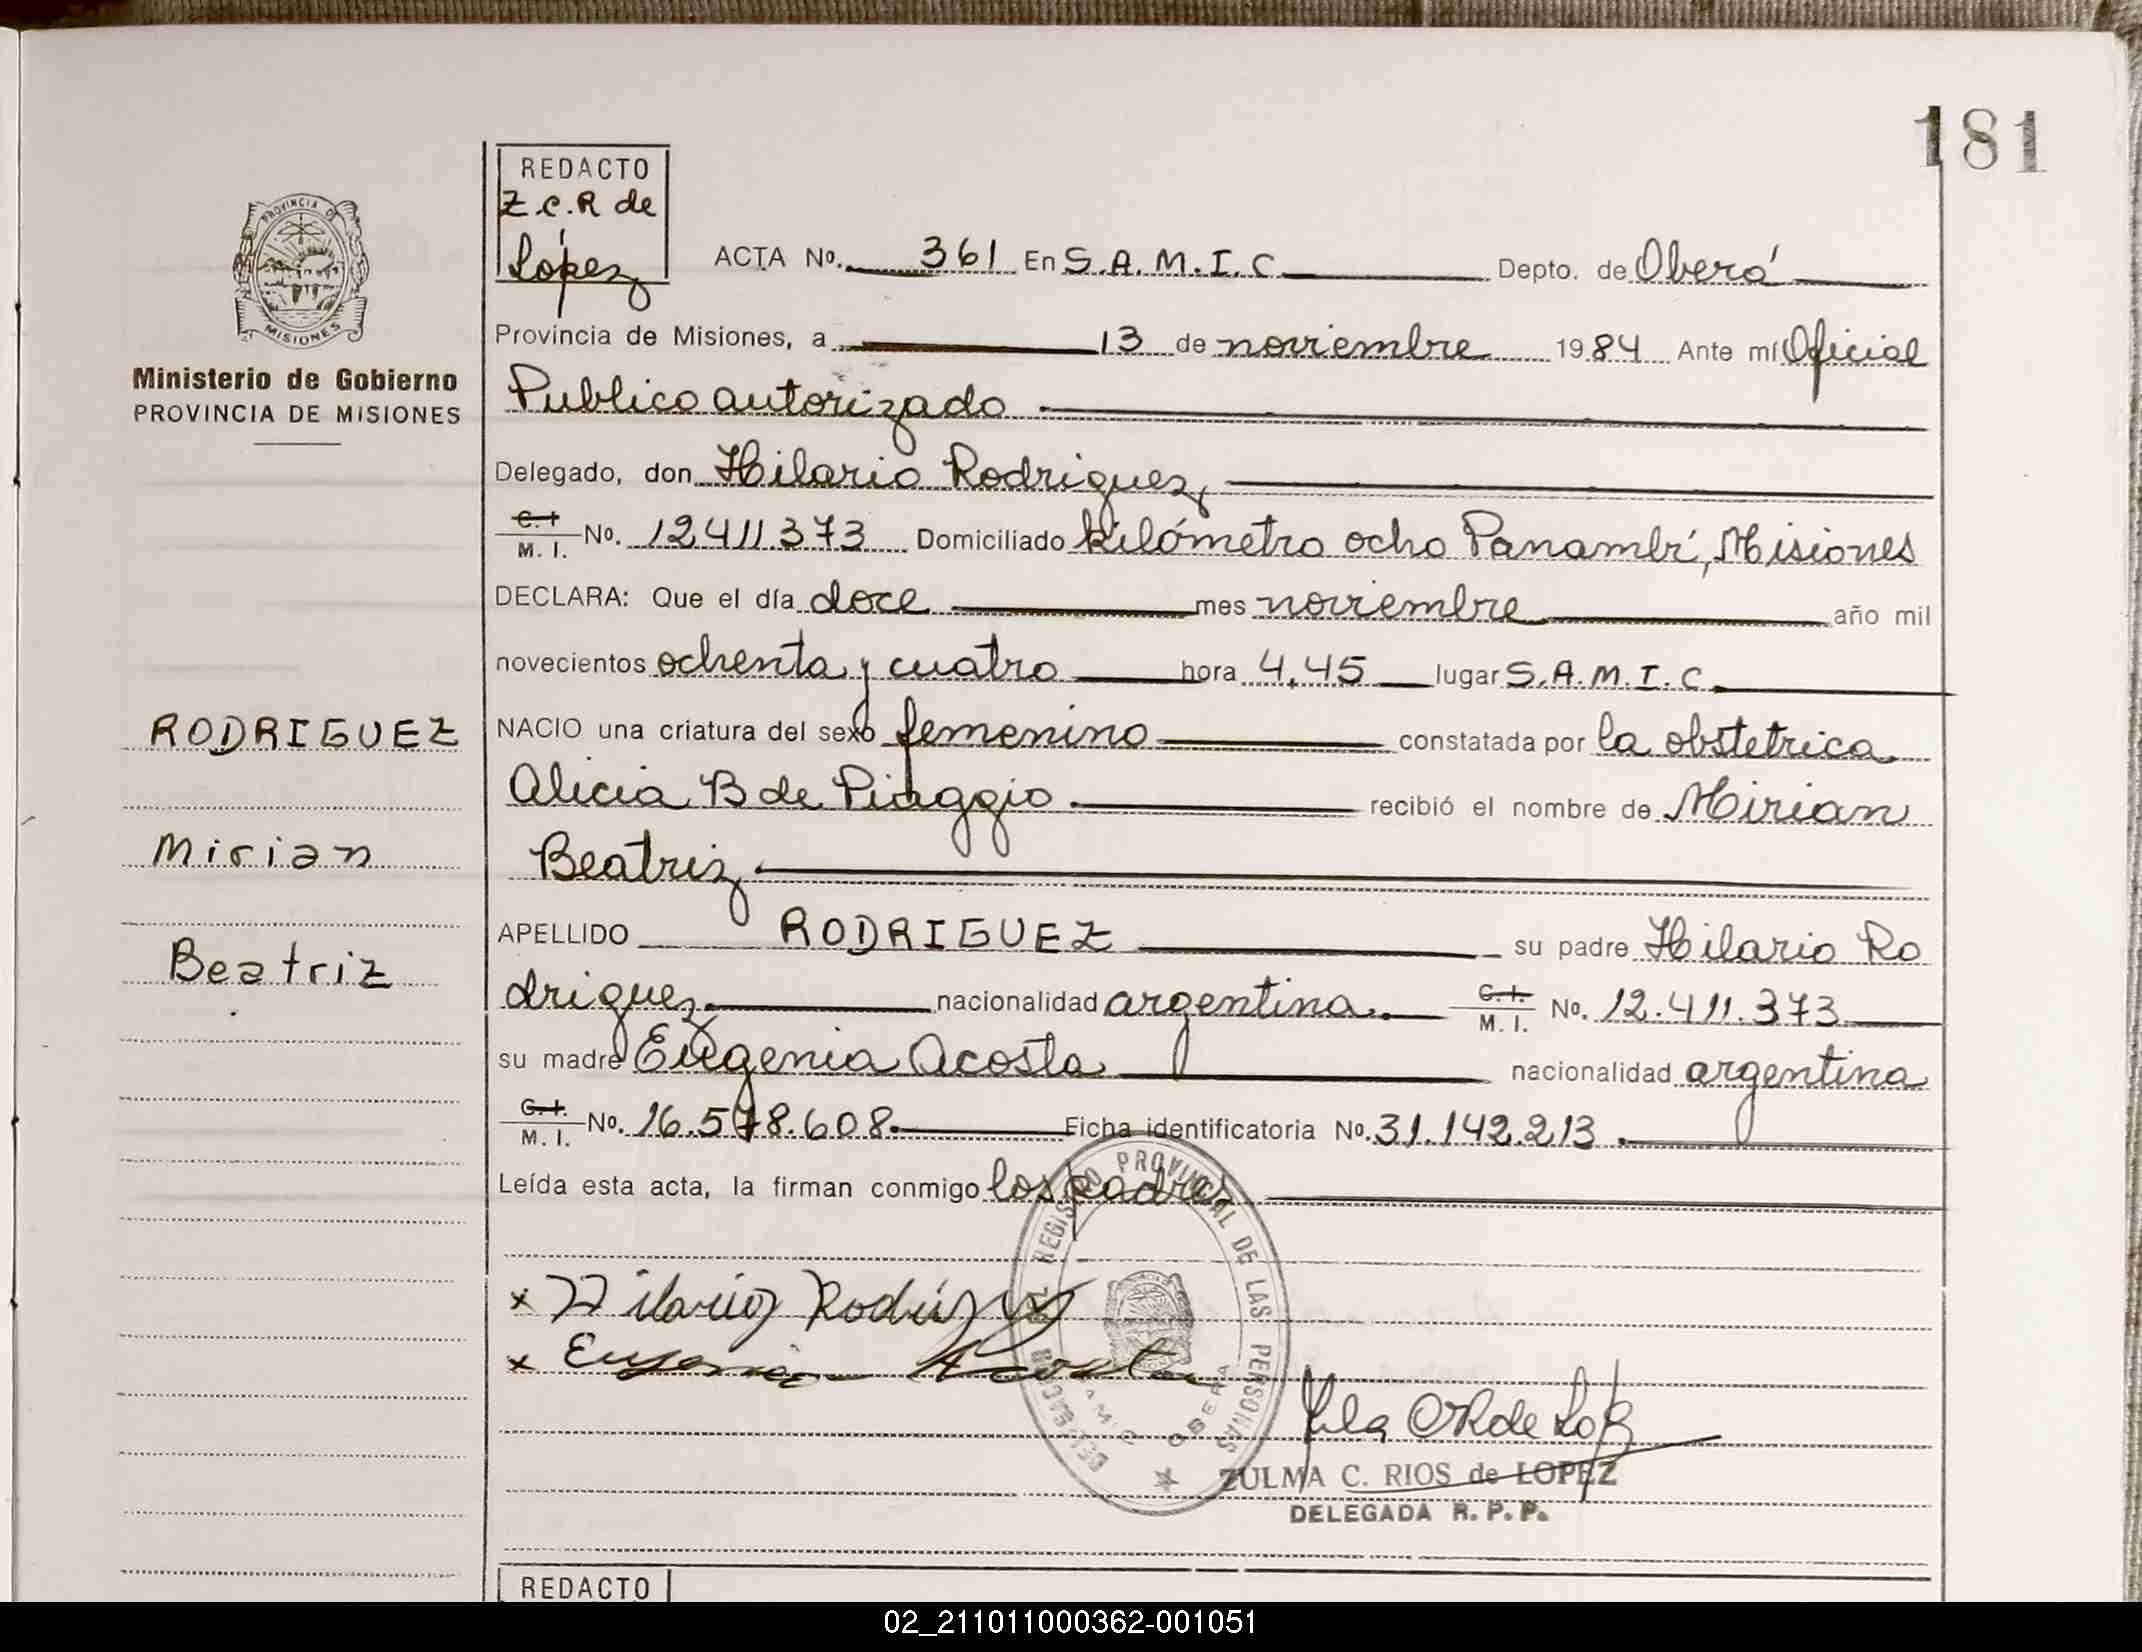 181
REDACTO
Z.C.R de
López
PROVINCIA DE
MISIONES
Ministerio de Gobierno
PROVINCIA DE MISIONES
ACTA No. 361 En S.A.M.I.C Depto. de Oberá
Provincia de Misiones, a 13 de noviembre 1984 Ante mí Oficial
Publico autorizado
Delegado, don Hilario Rodriguez,
C. I
M. I. No. 12411373 Domiciliado kilómetro ocho Panambí, Misiones
DECLARA: Que el día doce mes noviembre año mil
novecientos ochenta y cuatro hora 4,45 lugar S.A.M.I.C.
NACIO una criatura del sexo femenino constatada por la obstetrica
Alicia B de Piaggio recibió el nombre de Mirian
Beatriz
APELLIDO RODRIGUEZ su padre Hilario Ro
driguez nacionalidad argentina. C. I.
M. I. No. 12.411.373
su madre Eugenia Acosta nacionalidad argentina
C. I.
M. I. No. 16.578.608. Ficha identificatoria No. 31.142.213.
Leída esta acta, la firman conmigo los padres
RODRIGUEZ
Mirian
Beatriz
x Hilario Rodríguez
x Eugenia Acosta
REGISTRO PROVINCIAL DE LAS PERSONAS
OBERA
ZULMA C. RIOS de LOPEZ
DELEGADA R. P. P.
REDACTO
02_211011000362-001051